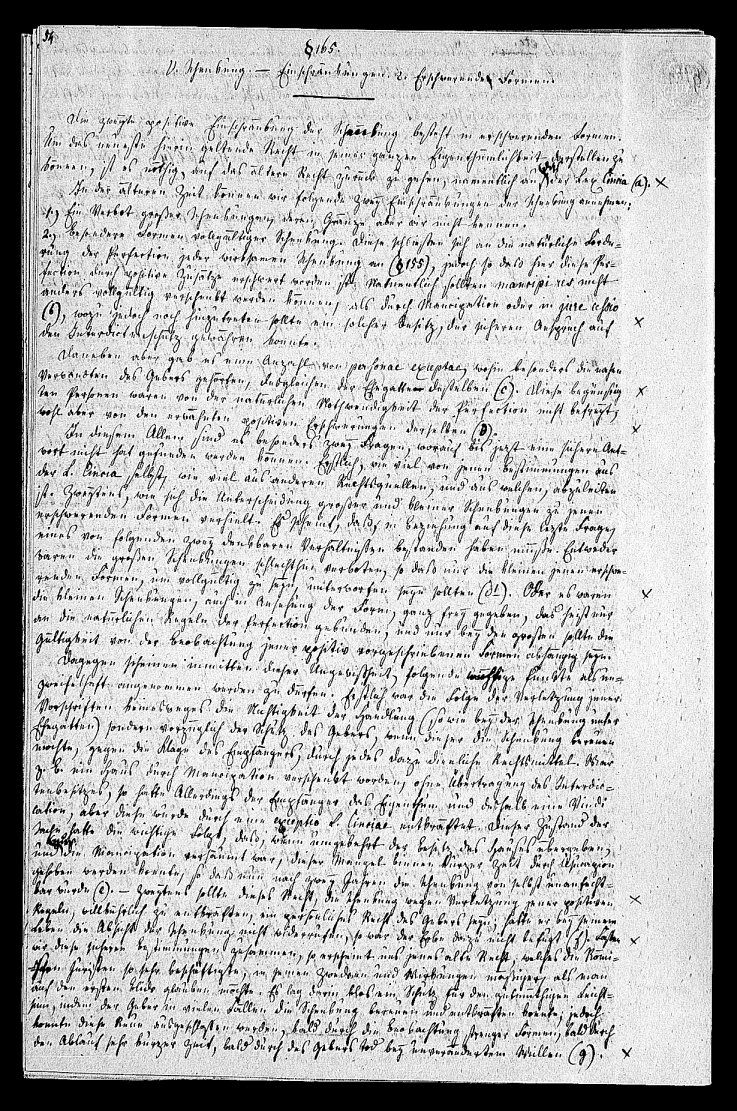 54
§165.
V. Schenkung. — Einschränkungen. 2. Erschwerende Formen.
Die zweyte positive Einschränkung der Schenkung besteht in erschwerenden Formen.
Um das neueste hierin geltende Recht in seiner ganzen Eigenthümlichkeit darstellen zu
können, ist es nöthig, auf das ältere Recht zurück zu gehen, namentlich auf der Lex Cincia (a). ×
In der älteren Zeit können wir folgende zwey Einschränkungen der Schenkung annehmen:
1. Ein Verbot großer Schenkungen, deren Gränze aber wir nicht kennen.
2. besondere Formen vollgültiger Schenkung. Diese schließen sich an die natürliche Forde-
rung der Perfection jeder wirksamen Schenkung an (§155), jedoch so daß hier diese Per-
fection durch positive Zusätze erschwert worden ist. Namentlich sollten mancipi res nicht
anders vollgültig verschenkt werden können, als durch Mancipation oder in jure cessio
(b), wozu jedoch noch hinzutreten sollte ein solcher Besitz, der sicheren Anspruch auf ×
den Interdictenschutz gewähren konnte.
Daneben aber gab es eine Anzahl von personae exceptae, wohin besonders die nahen
Verwandten des Gebers gehörten, desgleichen der Ehegatte desselben (c). Diese begünstig- ×
ten Personen waren von der natürlichen Nothwendigkeit der Perfection nicht befreyt,
wohl aber von den erwähnten positiven Erschwerungen derselben (d). ×
In diesem Allen sind es besonders zwey Fragen, worauf bis jetzt eine sichere Ant-
wort nicht hat gefunden werden können. Erstlich, wie viel von jenen Bestimmungen aus
der L. Cincia selbst, wie viel aus anderen Rechtsquellen, und aus welchen, abzuleiten
ist. Zweytens, wie sich die Unterscheidung großer und kleiner Schenkungen zu jenen
erschwerenden Formen verhielt. Es scheint, daß in Beziehung auf diese letzte Frage,
eines von folgenden zwey denkbaren Verhältnissen bestanden haben müsse. Entweder
waren die großen Schenkungen schlechthin verboten, so daß nur die kleinen jenen erschwe-
renden Formen, um vollgültig zu seyn, unterworfen seyn sollten (d1). Oder es waren ×
die kleinen Schenkungen, auch in Ansehung der Form, ganz frey gegeben, das heißt nur
an die natürlichen Regeln der Perfection gebunden, und nur bey den großen sollte die
Gültigkeit von der Beobachtung jener positiv vorgeschriebenen Formen abhängig seyn.
Dagegen scheinen inmitten dieser Ungewißheit, folgende wichtige Punkte als un-
zweifelhaft angenommen werden zu dürfen. Erstlich war die Folge der Verletzung jener
Vorschriften keinesweges die Nichtigkeit der Handlung (so wie bey der Schenkung unter
Ehegatten) sondern vorzüglich der Schutz des Gebers, wenn dieser die Schenkung bereuen
mochte, gegen die Klage des Empfängers, durch jedes dazu dienliche Rechtsmittel. War
z. B. ein Haus durch Mancipation verschenkt worden, ohne Übertragung des Interdic-
tenbesitzes, so hatte Allerdings der Empfänger das Eigenthum und deshalb eine Vindi-
cation, aber diese wurde durch eine exceptio L. Cinciae entkräftet. Dieser Zustand der
Sache hatte die wichtige Folge, daß, wenn umgekehrt der Besitz des Hauses übergeben,
und die Mancipation versäumt war, dieser Mangel binnen kurzer Zeit durch Usucapion
gehoben werden konnte, so daß nun nach zwey Jahren die Schenkung von selbst unanfecht-
bar wurde (e). — Zweytens sollte dieses Recht, die Schenkung wegen Verletzung jener positiven ×
Regeln, willkührlich zu entkräften, ein persönliches Recht des Gebers seyn; hatte er bey seinem
Leben die Absicht der Schenkung nicht widerrufen, so war der Erbe dazu nicht befugt (f). Fassen ×
wir diese sicheren Bestimmungen zusammen, so erscheint uns jenes alte Recht, welches die Römi-
schen Juristen so sehr beschäftigte, in seinen Zwecken und Wirkungen mäßiger, als man
auf den ersten Blick glauben möchte. Es lag darin blos ein Schutz für den gutmüthigen Leicht-
sinn, indem der Geber in vielen Fällen die Schenkung bereuen und entkräften konnte; jedoch
konnte diese Reue ausgeschlossen werden, bald durch die Beobachtung strenger Formen, bald durch
den Ablauf sehr kurzer Zeit, bald durch des Gebers Tod bey unverändertem Willen (g). ×